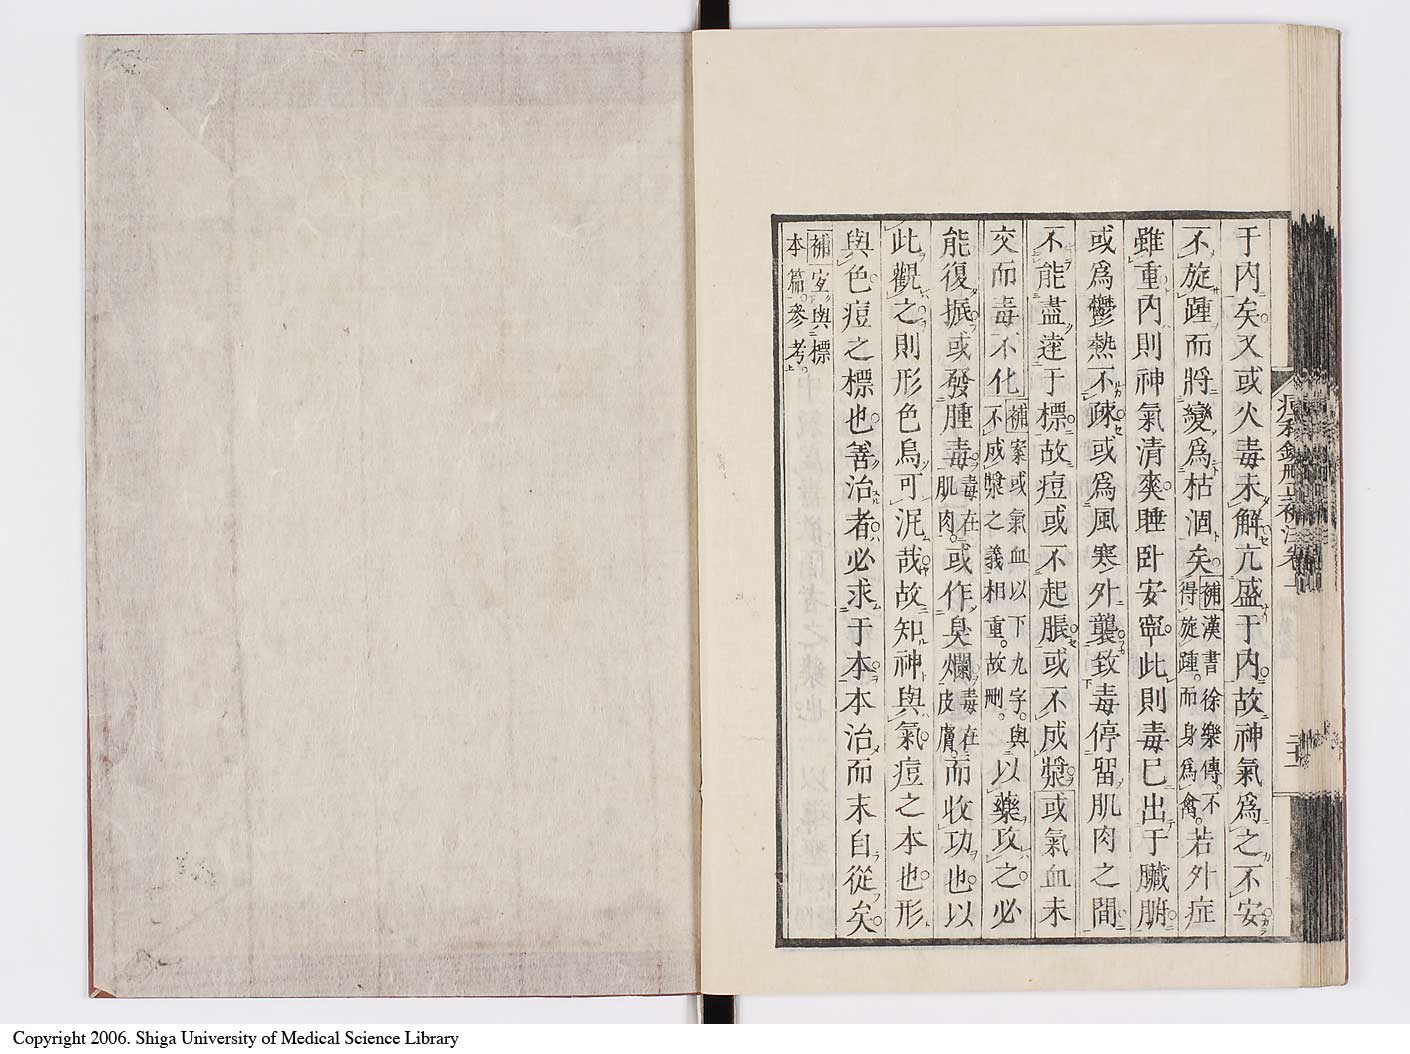 于内矣又或火毒未解亢盛于内故神氣爲之不安
不旋踵而將變爲枯涸矣補漢書徐樂傳不得旋踵而身爲禽若外症
雖重内則神氣清爽睡卧安寧此則毒已出于臟腑
或爲鬱熱不疎或爲風寒外襲致毒停留肌肉之間
不能盡達于標故痘或不起脹或不成漿或氣血未
交而毒不化補案或氣血以下九字與不成漿之義相重故删以藥攻之必
能復振或發腫毒毒在肌肉或作臭爛毒在皮膚而收功也以
此觀之則形色烏可泥哉故知神與氣痘之本也形
與色痘之標也善治者必求于本本治而末自從矣
補宜與標本篇參考
痘科鍵刪正補注卷上
Copyright 2006. Shiga University of Medical Science Library